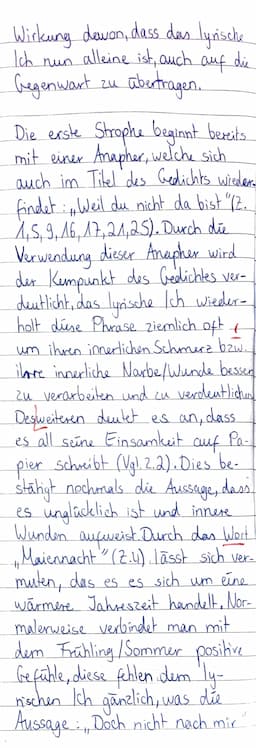 Wirkung davon, dass das lyrische
Ich nun alleine ist, auch auf die
Gegenwart zu übertragen.
Die erste Strophe beginnt bereits
mit einer Anapher, welche sich
auch im Titel des Gedichts wieder-
findet: „Weil du nicht da bist" (Z.
1,5,9,16,17,21,25). Durch die
Verwendung dieser Anapher wird
der Kernpunkt des Gedichtes ver-
deutlicht, das lyrische Ich wieder-
holt diese Phrase ziemlich oft
um ihren innerlichen Schmerz bzw.
ihre innerliche Narbe/Wunde besser
zu verarbeiten und zu verdeutlichen
Desweiteren deutet es an, dass
es all seine Einsamkeit auf Pa-
pier schreibt (Vgl. Z.2). Dies be-
stätigt nochmals die Aussage, dass
es unglücklich ist und innere
Wunden aufweist. Durch das Wort
„Maiennacht" (Z.4) lässt sich ver-
muten, das es es sich um eine
wärmere Jahreszeit handelt. Nor-
malerweise verbindet man mit
dem Frühling/Sommer positive
Gefühle, diese fehlen dem ly-
rischen Ich gänzlich, was die
Aussage: „Doch nicht nach mir